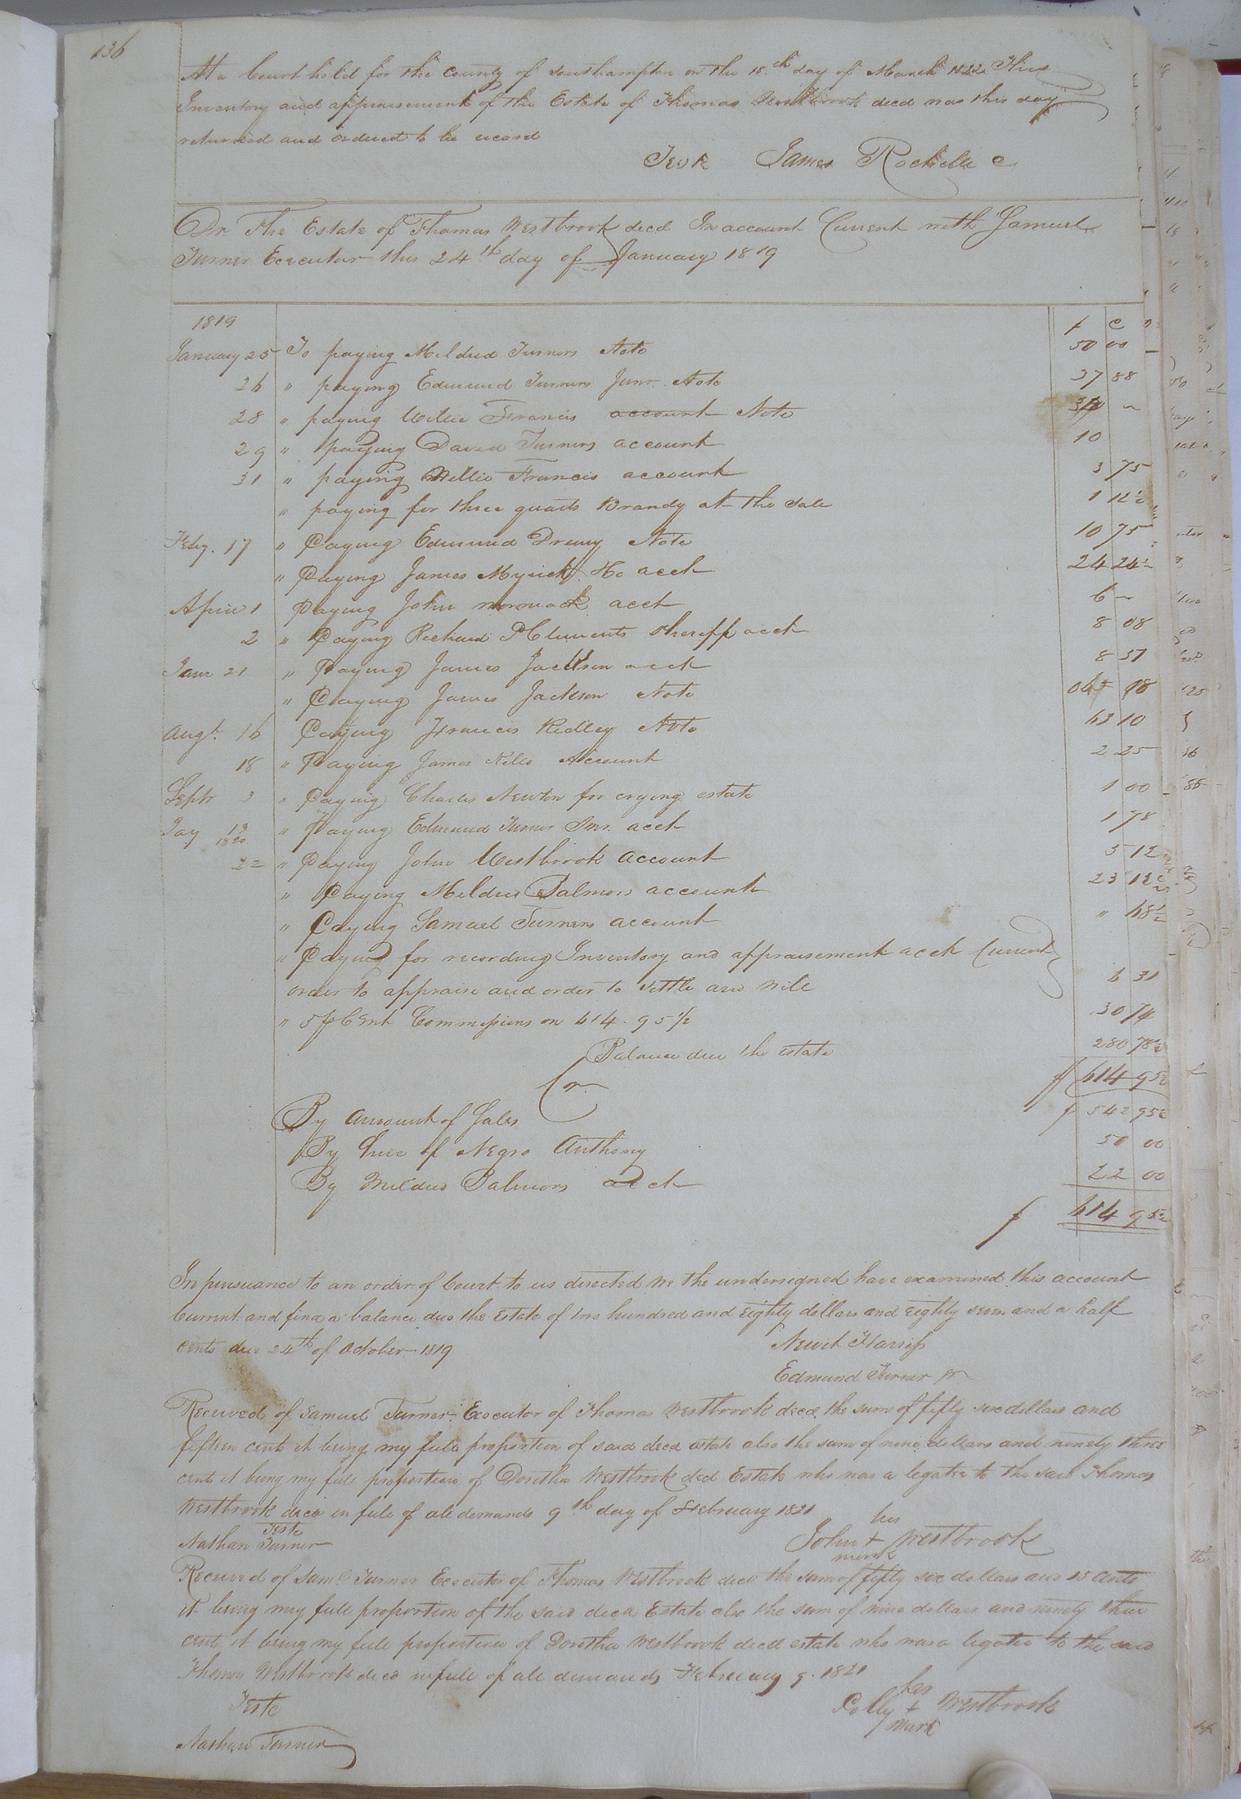 136
At a Court held for the County of Southampton on the 18th day of March 1822 This
Inventory and appraisement of the Estate of Thomas Westbrook decd was this day
returned and ordered to be record
Teste James Rochelle C
Dr. The Estate of Thomas Westbrook decd In account Current with Samuel
Turner Executor this 24th day of January 1819
1819 $ C
January 25 To paying Mildred Turners Note 50 00
26 " paying Edmund Turners Junr. Note 37 88
28 " paying Willie Francis account Note
29 " paying David Turners account 10
31 " paying Willie Francis account 3 75
" paying for three quarts Brandy at the Sale 1 12½
Feby. 17 " Paying Edmund Drewry Note 10 75
" Paying James Myrick & Co acct 24 24½
April 1 Paying John womack acct 6 ~
2 " Paying Richard P Clements Sheriff acct 8 08
21 " Paying James Jackson acct 8 57
" Paying James Jackson Note
Augt. 16 Paying Francis Ridley Note 63 10
18 " Paying James Account 2 25
Septr 3 " Paying Charles Newton for crying estate 1 00
13 " Paying Edmund Turner Snr. acct 1 78
22 " Paying John Westbrook account 5 12
" Paying Mildred Salmons account 23
" Paying Samuel Turners account " 68½
" Paying for recording Inventory and appraisement acct Current
order to appraise and order to settle and Will 6 31
" 5 p Cent Commissions on 614.95½ 30 74
Balance due the estate 280 78½
$ 614 95½
Cr
By amount of Sales $ 542 95½
By hire of Negro Anthony 50 00
By Mildred Salmons acct 22 00
$ 614 95½
In pursuance to an order of Court to us directed we the undersigned have examined this account
Current and find a balance due the Estate of two hundred and eighty dollars and eighty seven and a half
cents due 24th of October 1819
Newit Harris
Edmund Turner Jr
Received of Samuel Turner Executor of Thomas Westbrook decd the sum of fifty six dollars and
fifteen cent it being my full proportion of said decd estate also the sum of nine dollars and ninety three
cent it being my full proportion of Doritha Westbrook decd Estate who was a legatee to the said Thomas
Westbrook decd in full of all demands 9th day of February 1821
Teste
Nathan Turner
his
John + Westbrook
mark
Received of Saml Turner Executor of Thomas Westbrook decd the sum of fifty six dollars and 15 cents
it being my full proportion of the said decd Estate also the sum of nine dollars and ninety three
cent it being my full proportion of Doritha Westbrook decd estate who was a legatee to the said
Thomas Westbrook decd in full of all demands February 9. 1821
Teste
her
Polly + Westbrook
mark
Nathan Turner